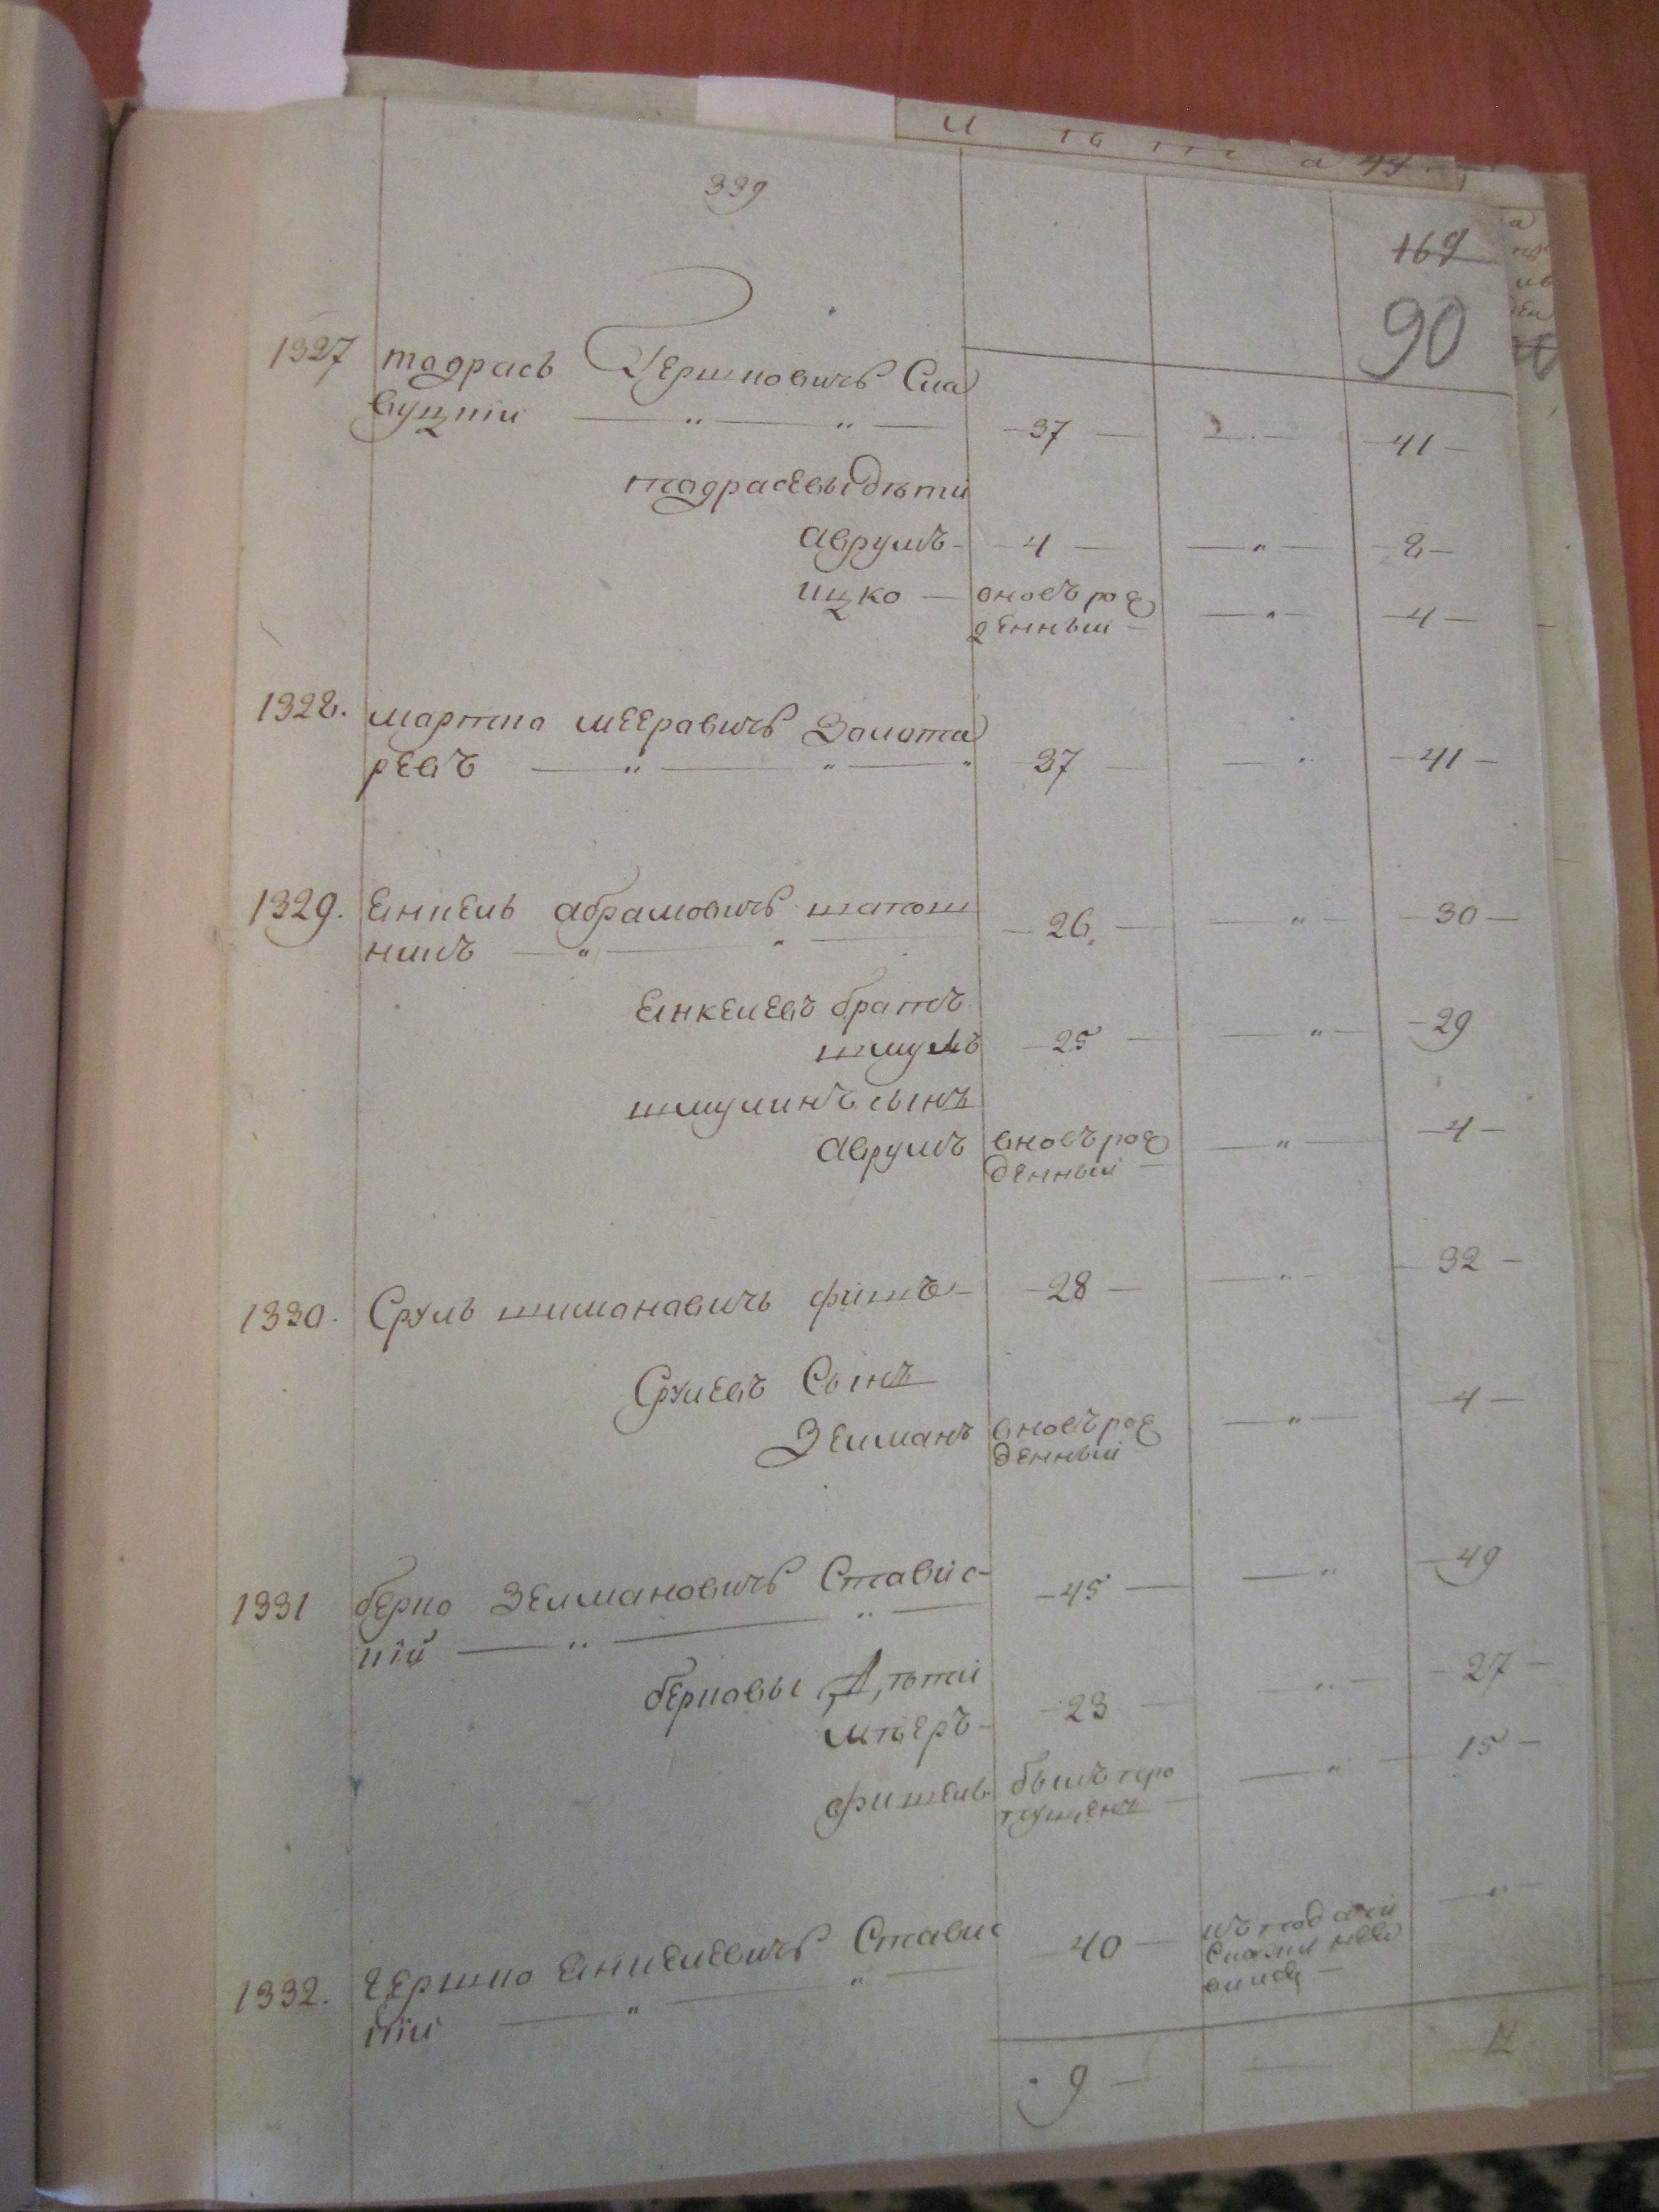 339
169
90
1327 тодрасъ Гершковичъ Сла
вуцкій — " — " — 37 — — 41 —
тодрасевы дѣти
аврумъ — 4 — — " — 8 —
ицко — вновь рож
денный — — " — 4 —
1328. мортко мееровичъ Золота
ревъ — " — " — 37 — — " 41 —
1329. Енкель абрамовичъ
никъ — " — " — 26. — — " — 30 —
Енкелевъ братъ
шмуль 25 — — " — 29
шмулинъ сынъ
аврумъ вновь рож
денный — — " — 4 —
1330. Сруль шимоновичъ фишъ — 28 — — " — 32 —
Срулевъ Сынъ
Зелманъ вновь рож
денный — " — 4 —
1331 берко Зелмановичъ Ставис-
кій — " — " — 45 — — " — 49
берковы Дѣти
мѣеръ — 23 — — " — 27 —
фишель былъ про
пущенъ — — " — 15 —
1332. Гершко Енкелевичъ Ставис
кій — " — " — 40 — — " —
9 — —